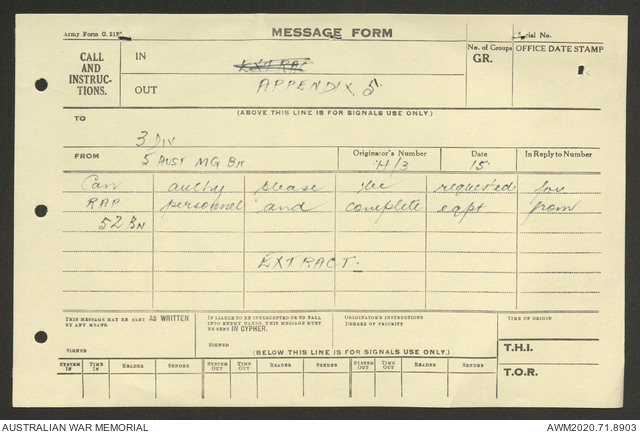 Army Form C. 2128
MESSAGE FORM
Serial No.
CALL AND INSTRUC-TIONS.
IN
EXTRAC
No. of Groups GR.
OFFICE DATE STAMP
OUT
APPENDIX 5
(ABOVE THIS LINE IS FOR SIGNALS USE ONLY.)
TO
3 DIV
FROM
5 AUST MG BN
Originator's Number
H/3
Date
15
In Reply to Number
Can authy please be requested for
RAP personnel and complete eqpt from
52 BN
EXTRACT.
THIS MESSAGE MAY BE SENT AS WRITTEN BY ANY MEANS.
SIGNED
IF LIABLE TO BE INTERCEPTED OR TO FALL INTO ENEMY HANDS, THIS MESSAGE MUST BE SENT IN CYPHER.
SIGNED
ORIGINATOR'S INSTRUCTIONS
DEGREE OF PRIORITY
TIME OF ORIGIN
(BELOW THIS LINE IS FOR SIGNALS USE ONLY.)
T.H.I.
SYSTEM IN TIME IN READER SENDER SYSTEM OUT TIME OUT READER SENDER SYSTEM OUT TIME OUT READER SENDER
T.O.R.
AUSTRALIAN WAR MEMORIAL
AWM2020.71.8903